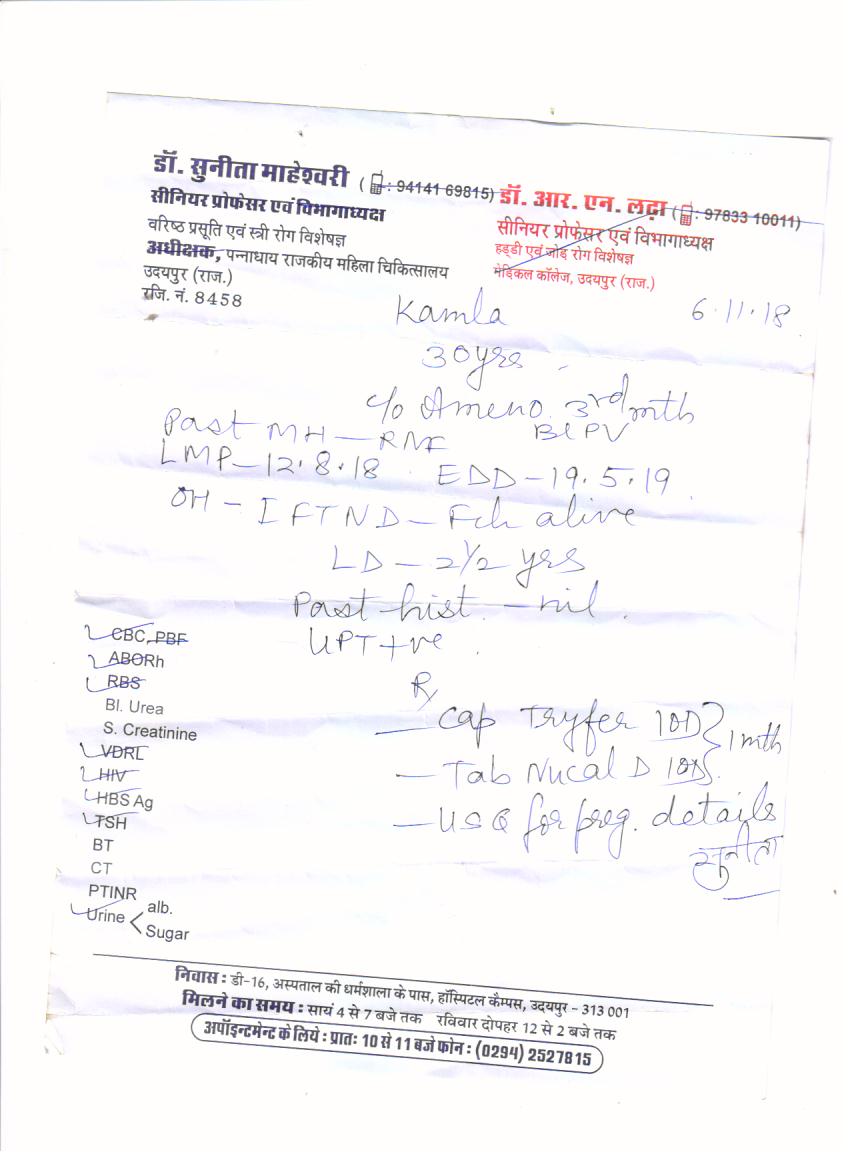 डॉ. सुनीता माहेश्वरी (: 94141 69815)
सीनियर प्रोफेसर एवं विभागाध्यक्ष
वरिष्ठ प्रसूति एवं स्त्री रोग विशेषज्ञ
अधीक्षक, पन्नाधाय राजकीय महिला चिकित्सालय
उदयपुर (राज.)
रजि. नं. 8458
डॉ. आर. एन. लढ़ा (: 97833 10011)
सीनियर प्रोफेसर एवं विभागाध्यक्ष
हड्डी एवं जोड़ रोग विशेषज्ञ
मेडिकल कॉलेज, उदयपुर (राज.)
Kamla 6.11.18
30 yrs
c/o Ameno. 3rd mth
Past MH - RMF BLPV
LMP - 12.8.18 EDD - 19.5.19
OH - I FTND - Fch alive
LD - 2 1/2 yrs
Past hist. - nil.
UPT +ve
CBC, PBF
ABORh
RBS
Bl. Urea
S. Creatinine
VDRL
HIV
HBS Ag
TSH
BT
CT
PTINR
Urine < alb.
Sugar
Rx
- Cap Tryfer 1OD } 1 mth
- Tab Nucal D 1OD
- USG for preg. details
सुनीता
निवास : डी-16, अस्पताल की धर्मशाला के पास, हॉस्पिटल कैम्पस, उदयपुर - 313 001
मिलने का समय : सायं 4 से 7 बजे तक रविवार दोपहर 12 से 2 बजे तक
अपॉइन्टमेन्ट के लिये : प्रातः 10 से 11 बजे फोन : (0294) 2527815